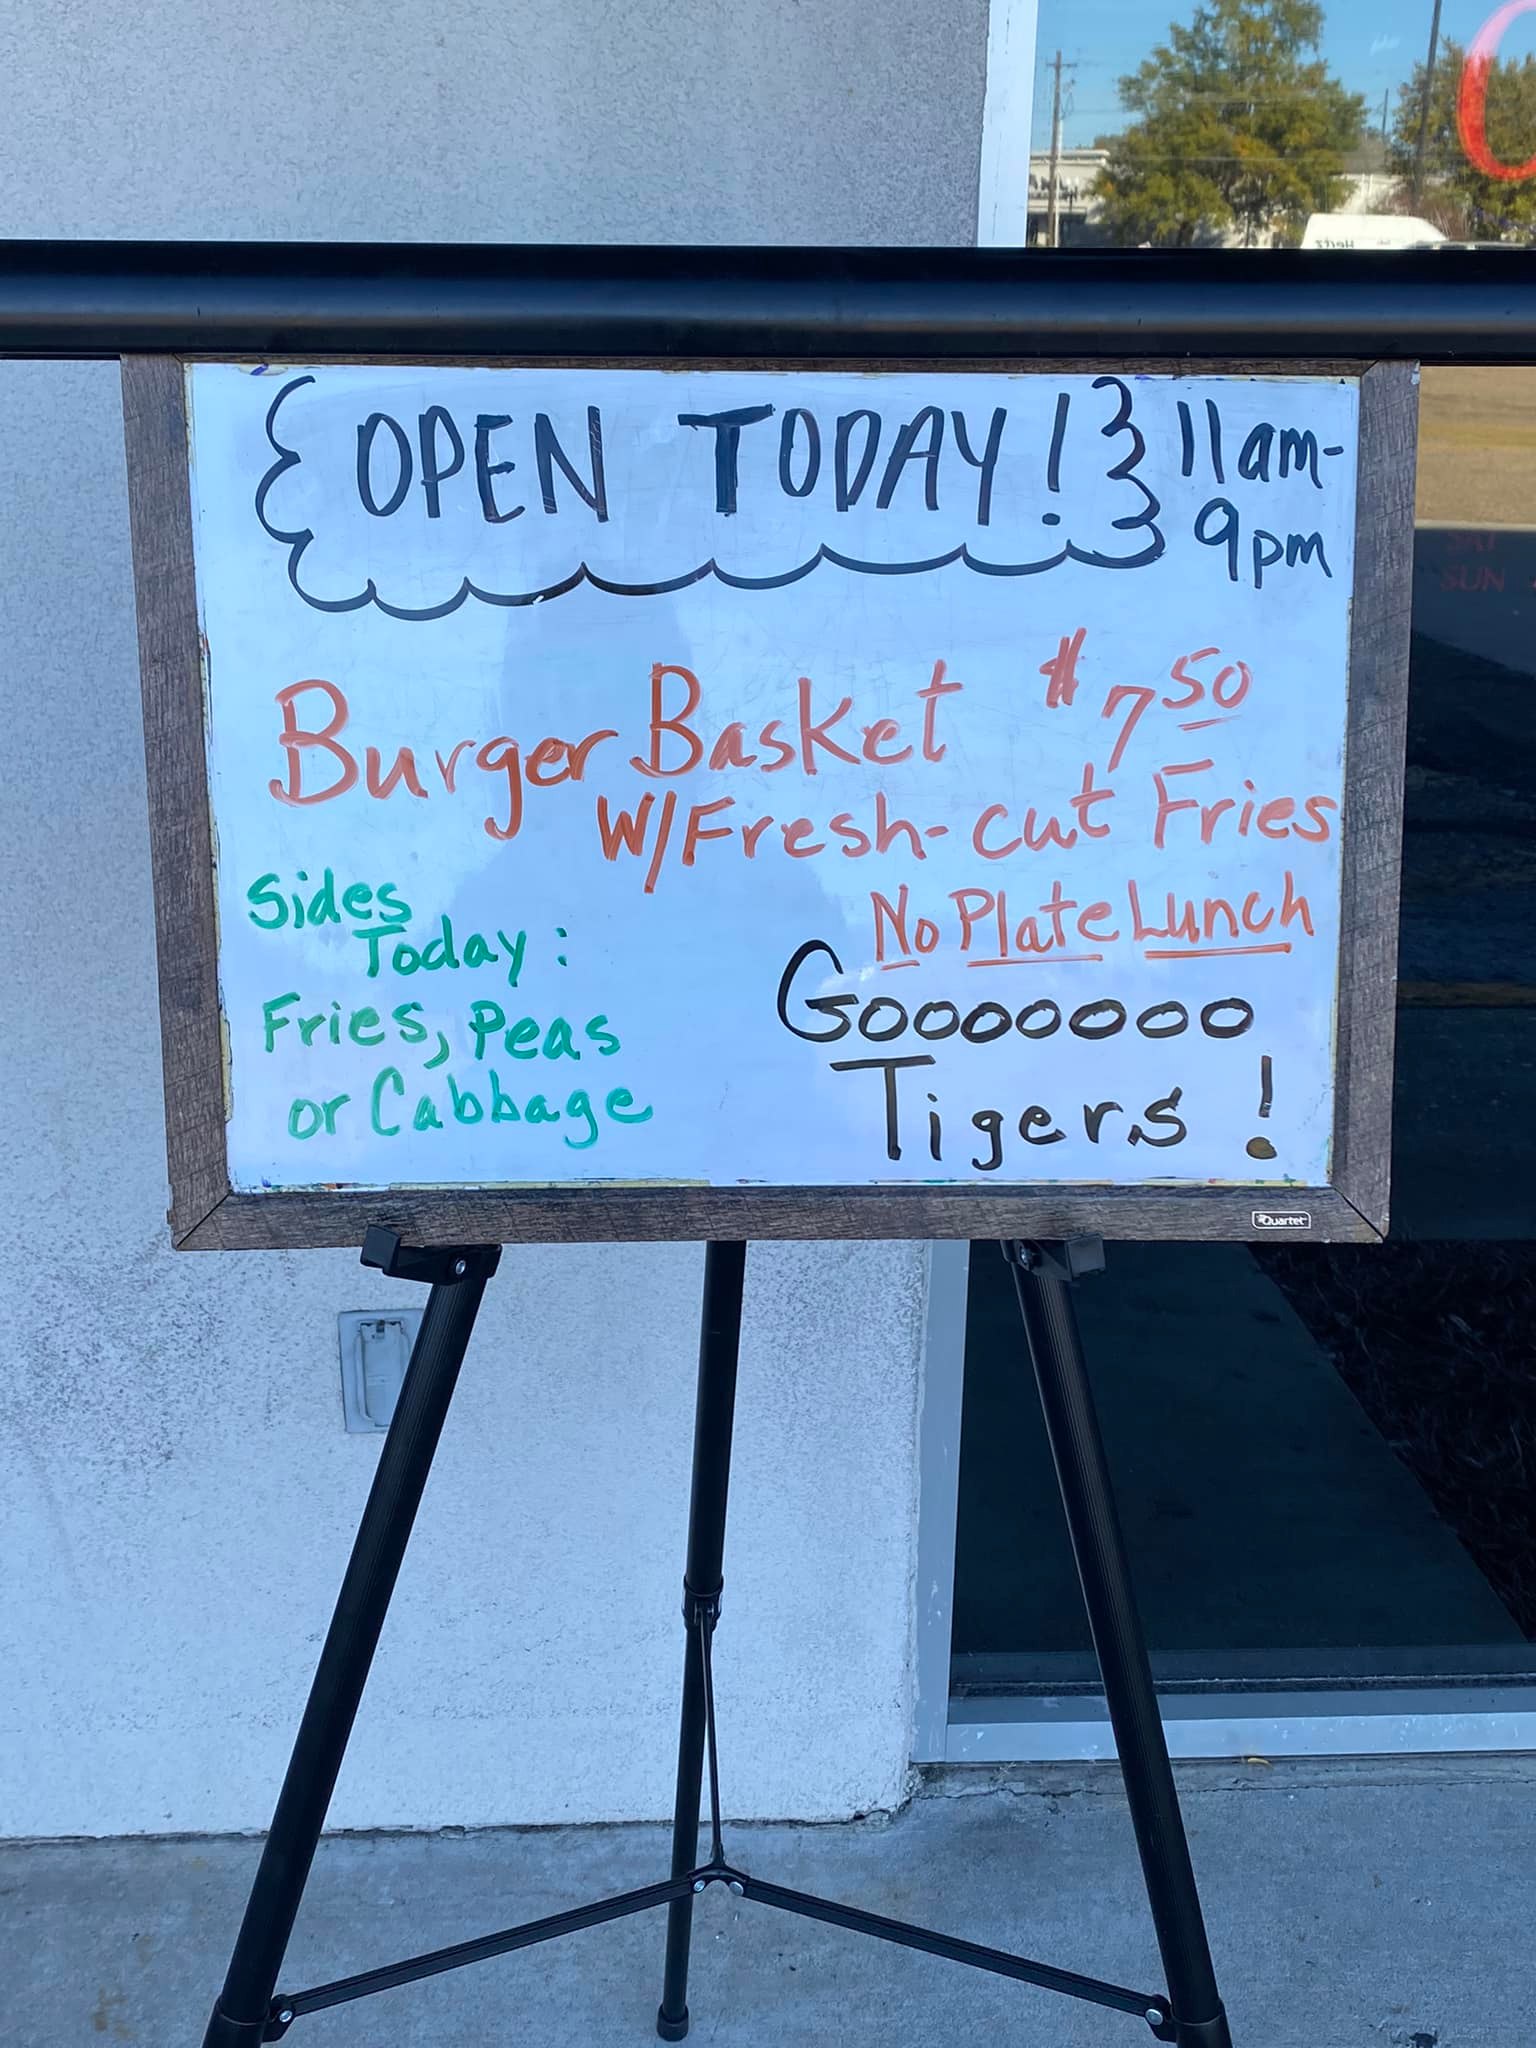 {OPEN TODAY!} 11am-
9pm
Burger Basket $7 50
W/Fresh-cut Fries
No Plate Lunch
Sides
Today:
Fries, Peas
or Cabbage
Gooooooo
Tigers!
Quartet
Hertz
SAT
SUN